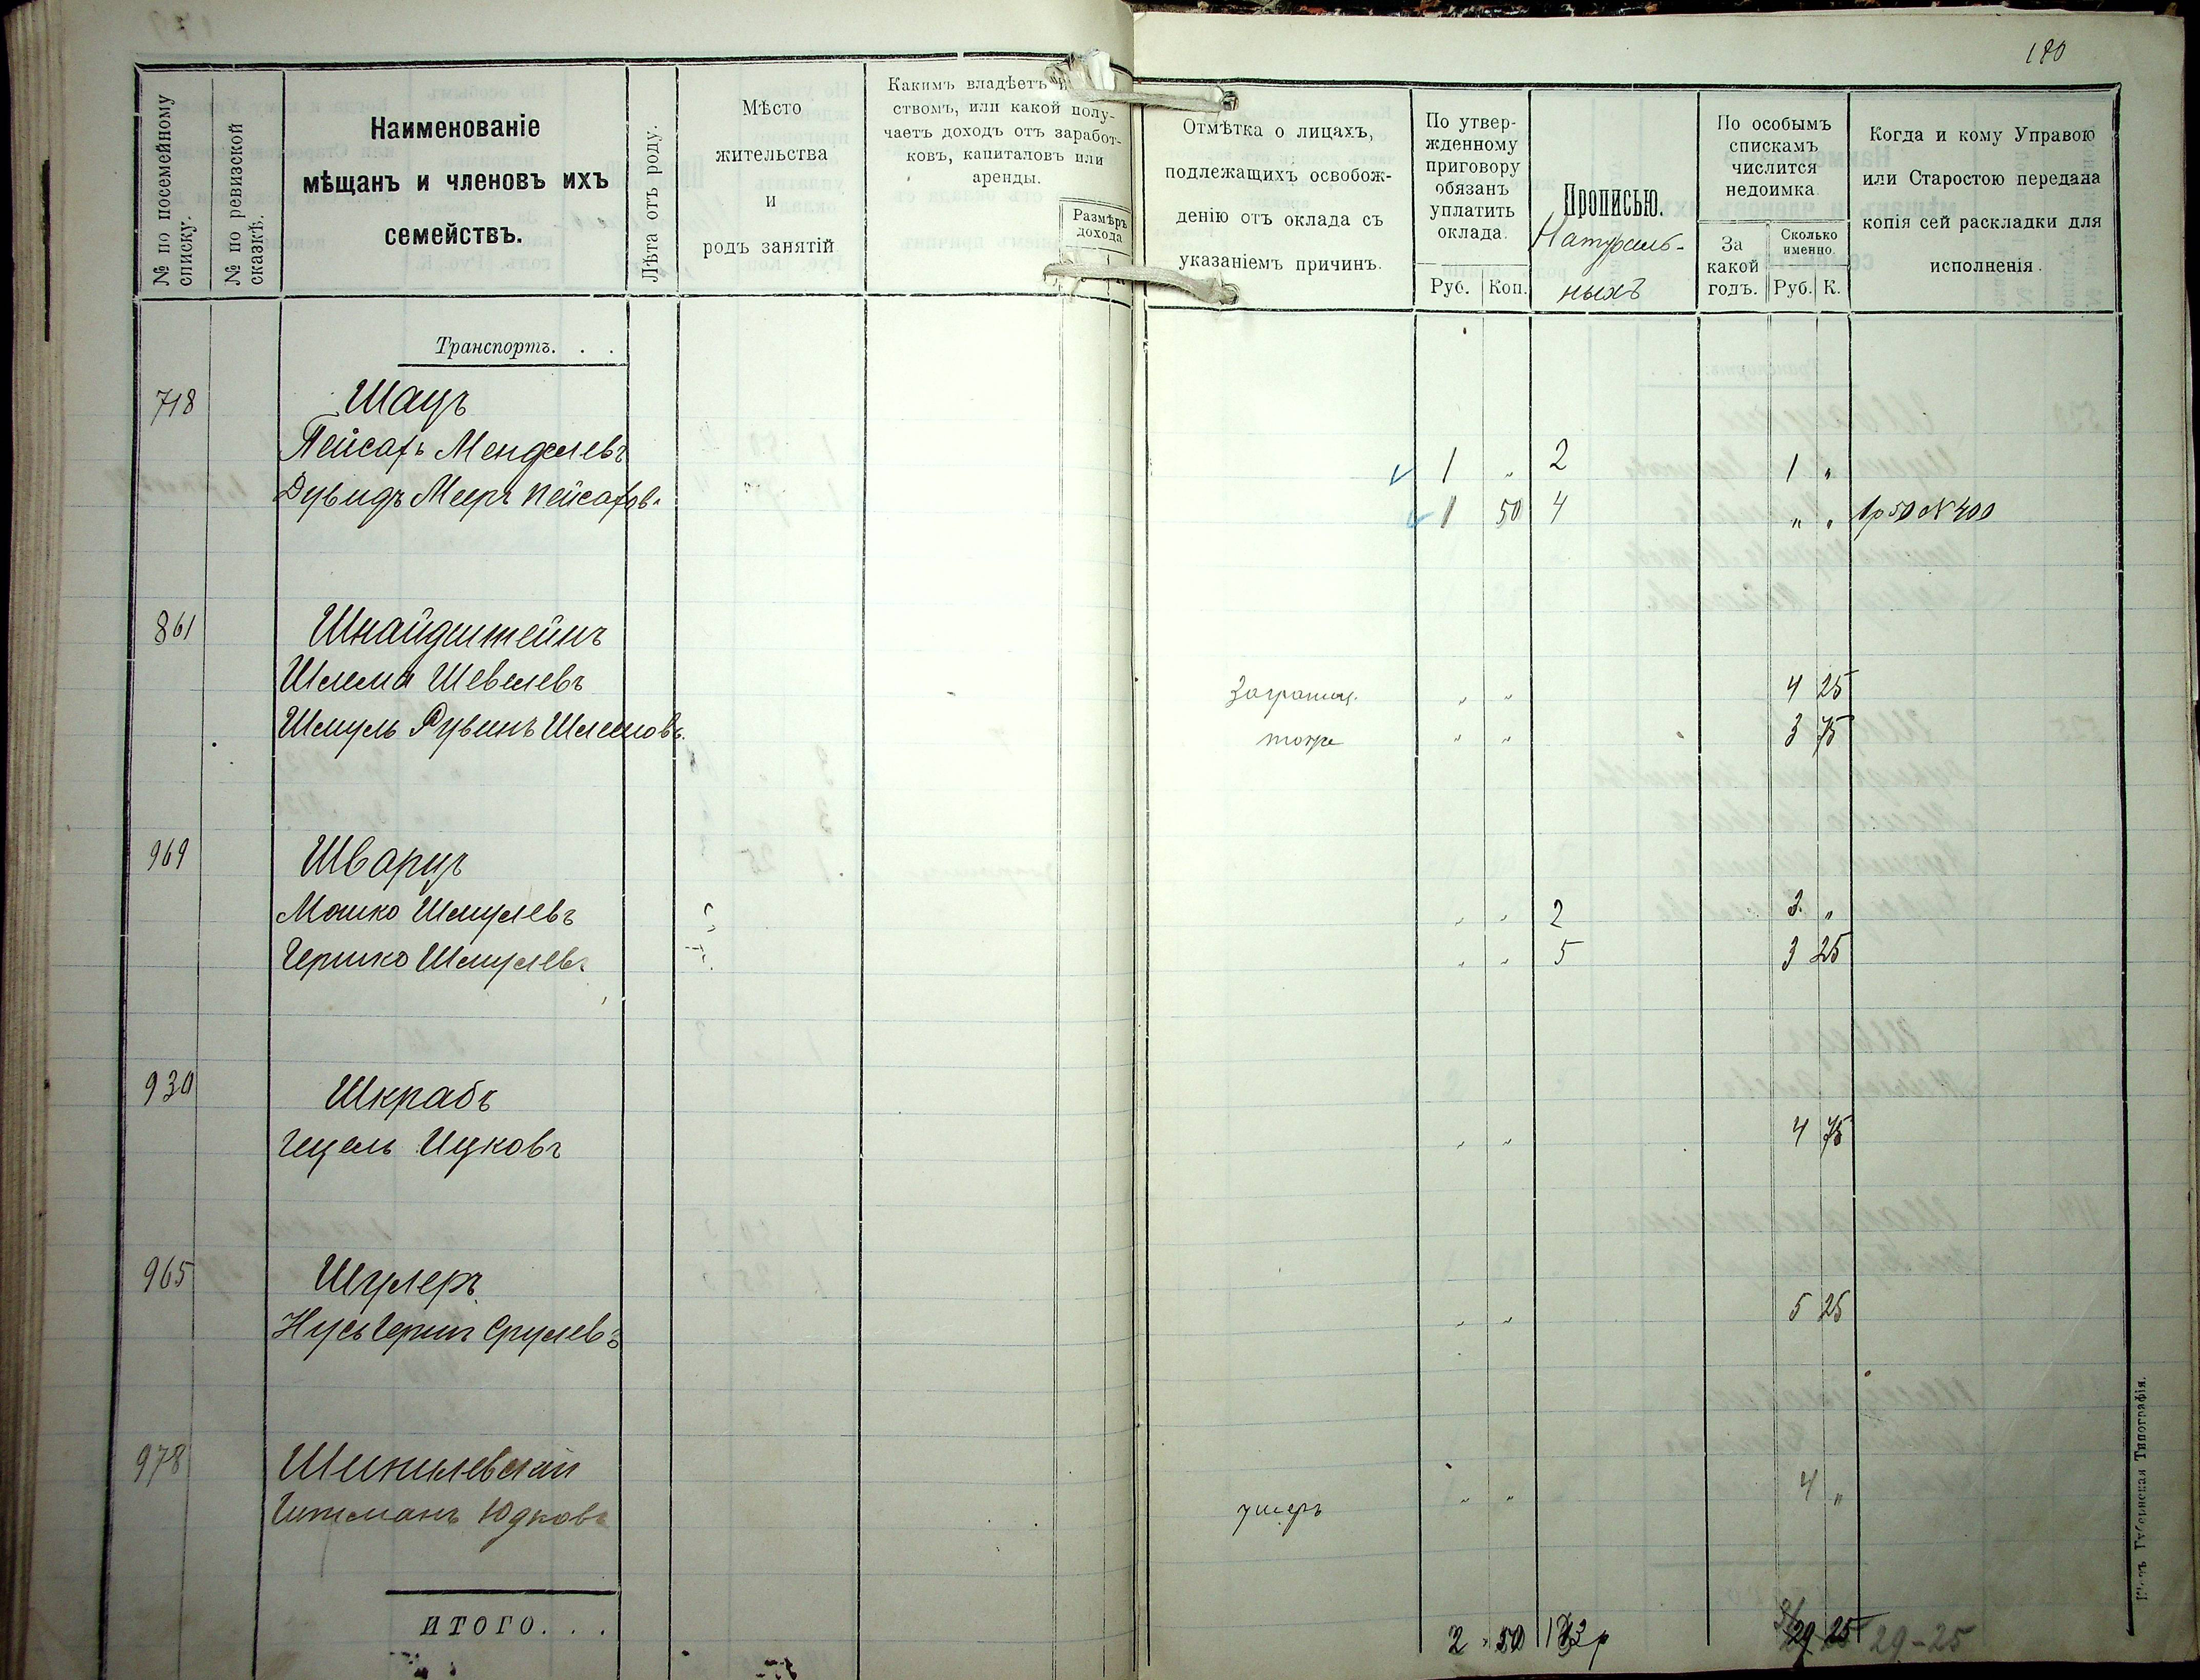 180
№ по посемейному списку.
№ по ревизской сказкѣ.
Наименованіе
мѣщанъ и членовъ ихъ
семействъ.
Лѣта отъ роду.
Мѣсто
жительства
и
родъ занятій
Какимъ владѣетъ
ствомъ, или какой полу-
чаетъ доходъ отъ заработ-
ковъ, капиталовъ или
аренды.
Размѣръ
дохода
Отмѣтка о лицахъ,
подлежащихъ освобож-
денію отъ оклада съ
указаніемъ причинъ.
По утвер-
жденному
приговору
обязанъ
уплатить
оклада.
Руб. Коп.
Прописью.
Натураль-
ныхъ
По особымъ
спискамъ
числится
недоимка.
За
какой
годъ.
Сколько
именно.
Руб. К.
Когда и кому Управою
или Старостою передана
копія сей раскладки для
исполненія.
Транспортъ. . .
718 Шацъ
Пейсахъ Менделевъ 1 " 2 1 "
Дувидъ Мееръ Пейсаховъ 1 50 4 " " 1р50 №400
861 Шнайдштейнъ
Шлема Шевелевъ Заграниц. " " 4 25
Шмуль Рувинъ Шлемовъ. тоже " " 3 75
969 Шварцъ
Мошко Шмулевъ " " 2 3 "
Гершко Шмулевъ " " 5 3 25
930 Шкрабъ
Гецель Ицковъ " " 4 75
965 Шулеръ
Нусь Гершъ Срулевъ " " 5 25
978 Шипилевский
Гитманъ Юдковъ умеръ " " 4 "
ИТОГО. . . 2 50 13р 29 25 29-25
Губернская Типографія.